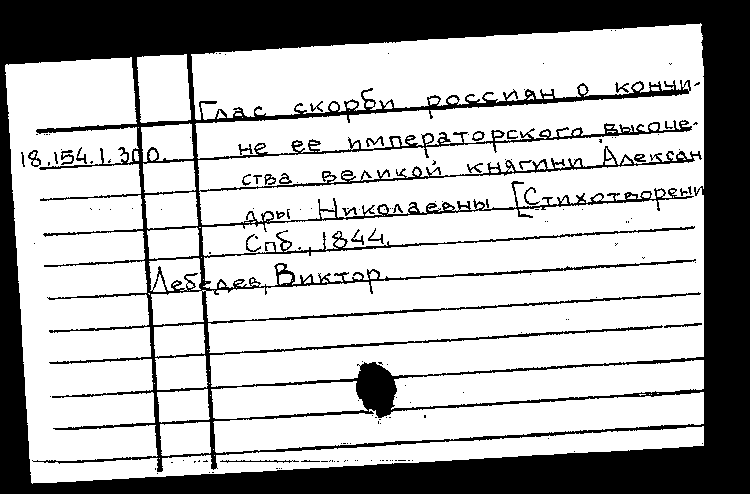 Глас скорби россиян о кончи-
18.154.1.300. не ее императорского высоче-
ства великой княгини Алексан
дры Николаевны [Стихотворени
Спб., 1844.
Лебедев, Виктор.